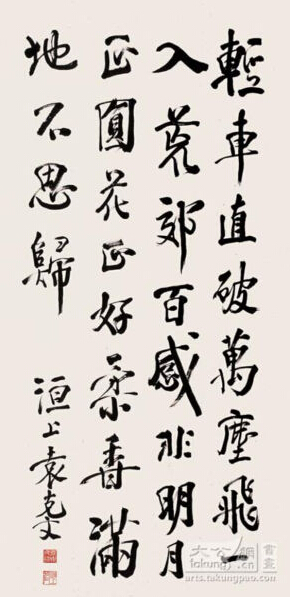 輕車直破萬塵飛一
入荒郊百感非明月
正圓花正好柔香滿
地不思歸
洹上袁克文
大公網 書畫
arts.takungpao.com